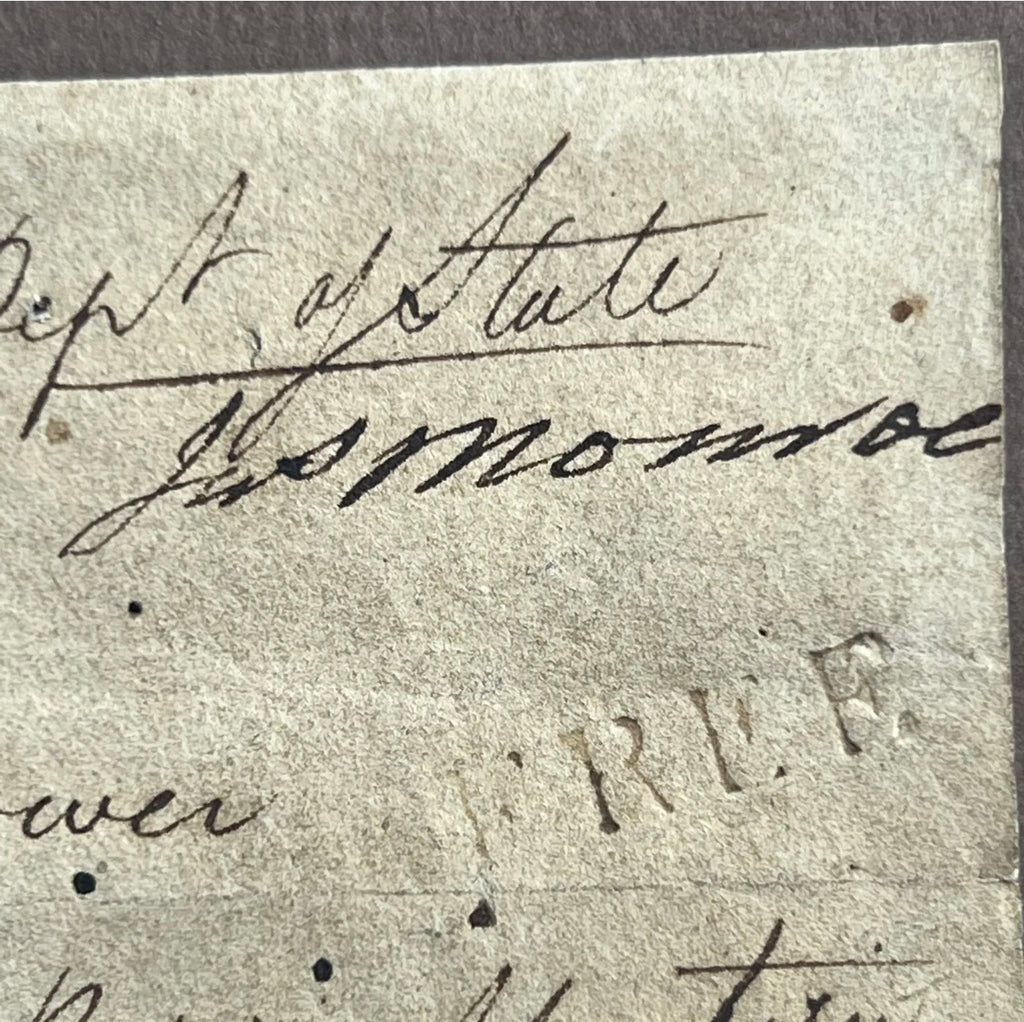 Dept of State
Jas Monroe
FREE
wer